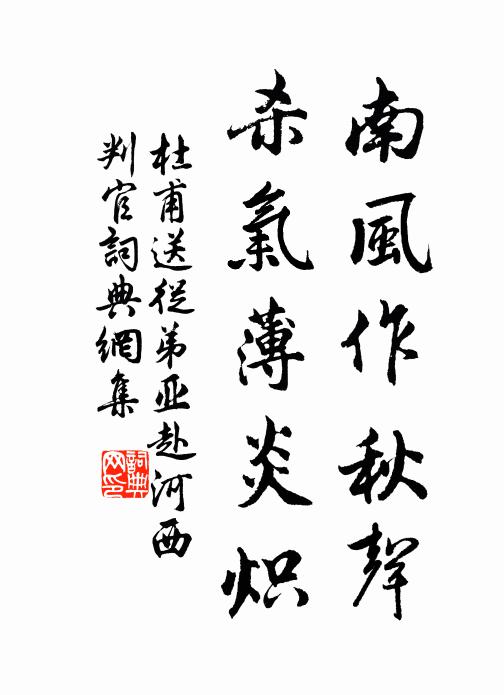 南風作秋聲
杀氣薄炎炽
杜甫送從弟亚赴河西
判官詞典網集
詞典
网印